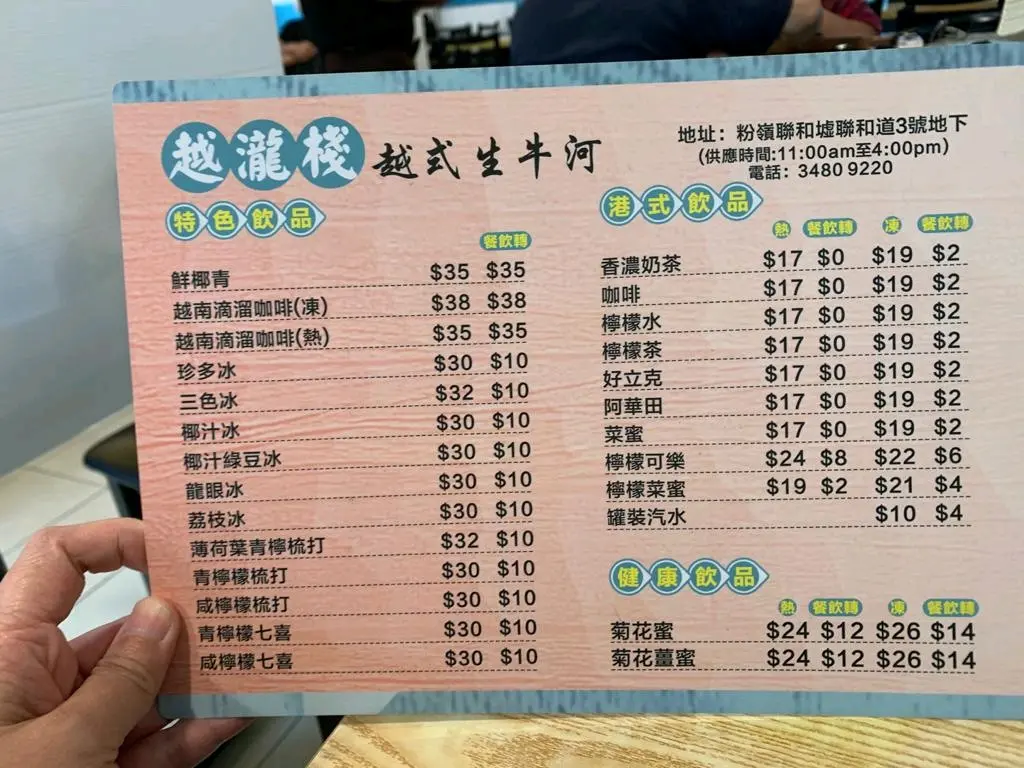 越瀧棧 越式生牛河
地址：粉嶺聯和墟聯和道3號地下
(供應時間:11:00am至4:00pm)
電話：3480 9220
特色飲品
餐飲轉
鮮椰青 $35 $35
越南滴溜咖啡(凍) $38 $38
越南滴溜咖啡(熱) $35 $35
珍多冰 $30 $10
三色冰 $32 $10
椰汁冰 $30 $10
椰汁綠豆冰 $30 $10
龍眼冰 $30 $10
荔枝冰 $30 $10
薄荷葉青檸梳打 $32 $10
青檸檬梳打 $30 $10
咸檸檬梳打 $30 $10
青檸檬七喜 $30 $10
咸檸檬七喜 $30 $10
港式飲品
熱 餐飲轉 凍 餐飲轉
香濃奶茶 $17 $0 $19 $2
咖啡 $17 $0 $19 $2
檸檬水 $17 $0 $19 $2
檸檬茶 $17 $0 $19 $2
好立克 $17 $0 $19 $2
阿華田 $17 $0 $19 $2
菜蜜 $17 $0 $19 $2
檸檬可樂 $24 $8 $22 $6
檸檬菜蜜 $19 $2 $21 $4
罐裝汽水 $10 $4
健康飲品
熱 餐飲轉 凍 餐飲轉
菊花蜜 $24 $12 $26 $14
菊花薑蜜 $24 $12 $26 $14